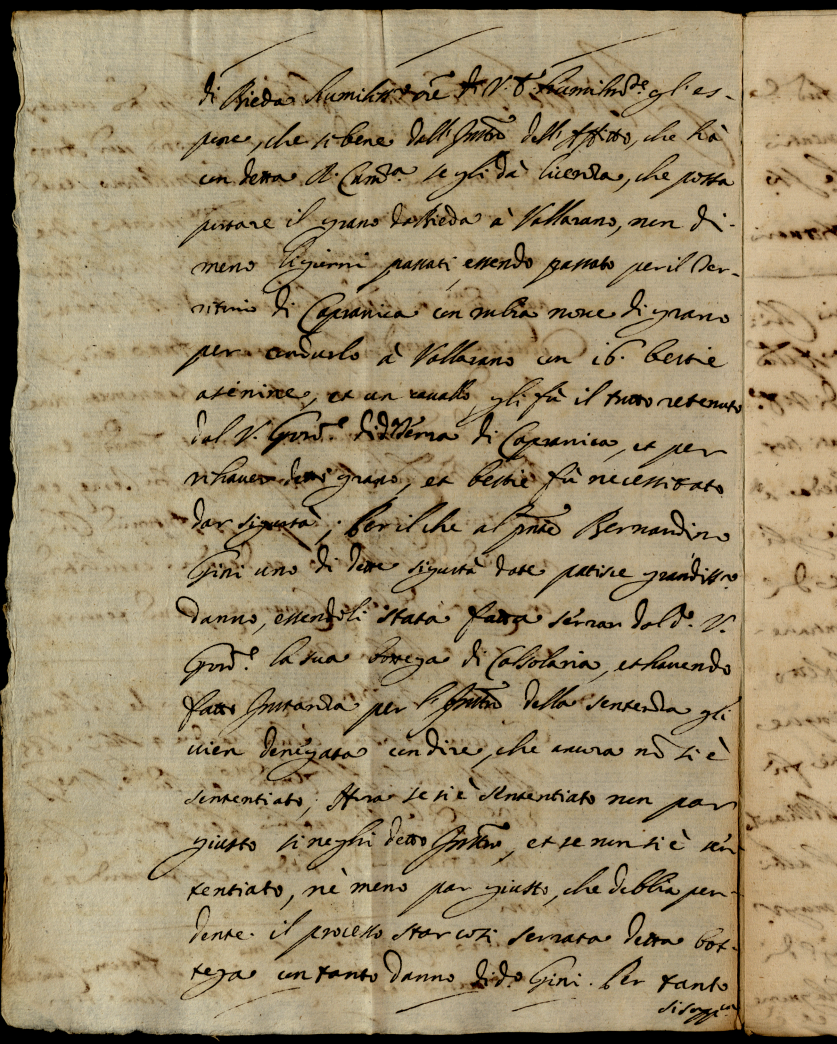 di Bieda humiliss.e ore di V. S. humilm.te gli es-
pone, che si bene dall'Instro dell'Affitto, che hà
con detta R. Cam.ra se gli dà licenza, che possa
portare il grano da Bieda à Vallarano, non di-
meno li giorni passati, essendo passato per il Ter-
ritorio di Capranica con rubia nove di grano
per condurlo à Vallarano con 16. bestie
asinine, et un cavallo gli fù il tutto retenuto
dal V. Gov.re di d.a Terra di Capranica, et per
rihaver detto grano, et bestie fù necessitato
dar sigurtà; Per il che al pnte Bernardino
Gini uno di dette sigurtà date patisce grandiss.o
danno, essendoli stata fatta serrar dal d.o V.
Gov.re la sua bottega di Calsolaria, et havendo
fatto Instanza per l'Instro della sentenza gli
vien denegata con dire, che ancora nō si è
sententiato; Hora se si è sententiato non par
giusto si neghi detto Instro, et se non si è sen-
tentiato, nè meno par giusto, che debbia pen-
dente il processo star così serrata detta bot-
tega con tanto danno di d.o Gini. Per tanto
si supp.ca